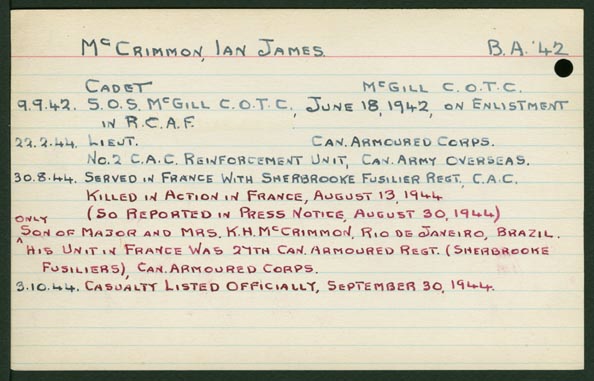 McCrimmon, Ian James. B.A. '42
Cadet McGill C.O.T.C.
9.9.42. S.O.S. McGill C.O.T.C., June 18, 1942, on Enlistment
in R.C.A.F.
22.2.44. Lieut. Can. Armoured Corps.
No. 2 C.A.C. Reinforcement Unit, Can. Army Overseas.
30.8.44. Served in France With Sherbrooke Fusilier Regt., C.A.C.
Killed in Action in France, August 13, 1944
(So Reported in Press Notice, August 30, 1944)
only
^ Son of Major and Mrs. K.H. McCrimmon, Rio de Janeiro, Brazil.
His Unit in France Was 27th Can. Armoured Regt. (Sherbrooke
Fusiliers), Can. Armoured Corps.
3.10.44. Casualty Listed Officially, September 30, 1944.